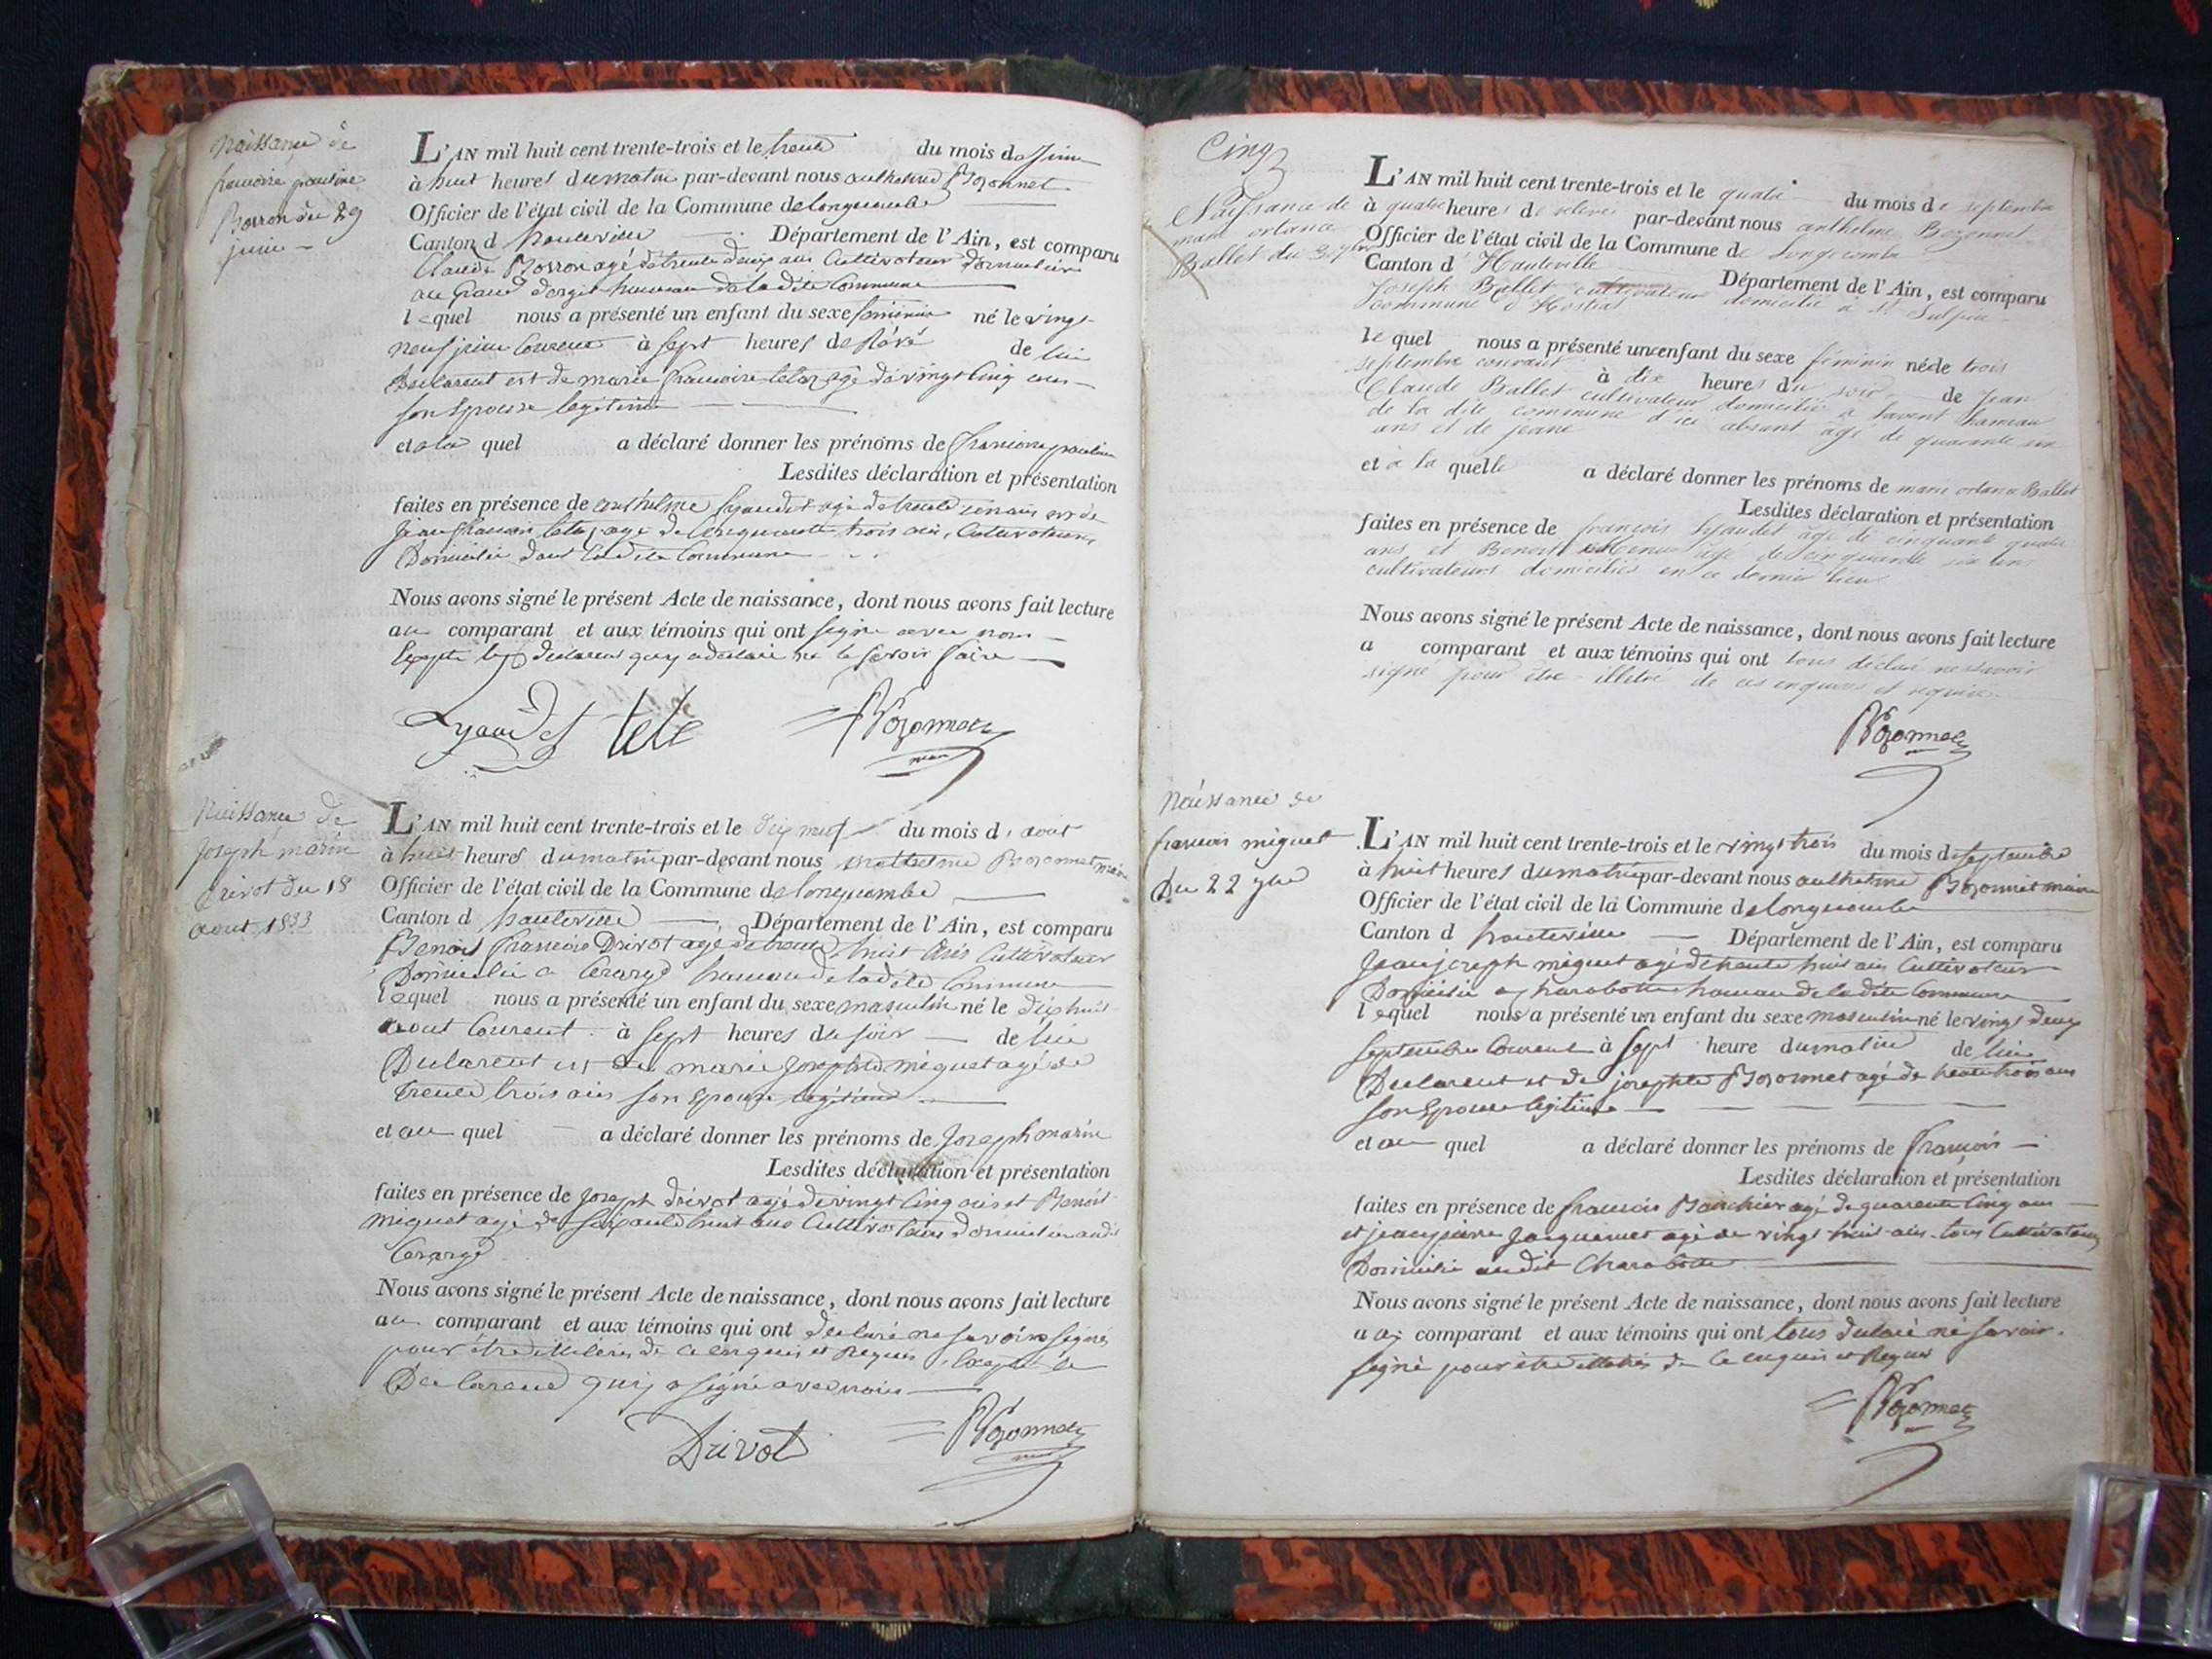 Naissance de
francoise pauline
Borron du 29
juin
L'AN mil huit cent trente-trois et le trente du mois de juin
à huit heures du matin par-devant nous anthelme Bozonnet
Officier de l'état civil de la Commune de longecombe
Canton d hauteville Département de l'Ain, est comparu
Claude Borron agé de trente deux ans Cultivateur Domicilié
au Grand dergit hameau de la dite Commune
lequel nous a présenté un enfant du sexe féminin né le vingt
neuf juin Courent à sept heures de
de lui
Declarent et de marie francoise tete agé de vingt Cinq ans
son Epouse legitime
et a la quel a déclaré donner les prénoms de francoise pauline
Lesdites déclaration et présentation
faites en présence de anthelme lyaudet agé de trente ans et de
jean francois tete agé de Cinquante trois ans, Cultivateurs
Domicilié dans la dite Commune
Nous avons signé le présent Acte de naissance, dont nous avons fait lecture
au comparant et aux témoins qui ont signé avec nous
Excepté le declarent qui a declaré ne le savoir faire
Lyaudet tete Bozonnet
Naissance de
Joseph marin
Drivot du 18
aout 1833
L'AN mil huit cent trente-trois et le dix neuf du mois d'aout
à huit heures du matin par-devant nous anthelme Bozonnet maire
Officier de l'état civil de la Commune de longecombe
Canton d hauteville Département de l'Ain, est comparu
Benoit francois Drivot agé de trente huit ans Cultivateur
Domicilié a hameau de la dite Commune
lequel nous a présenté un enfant du sexe masculin né le dix huit
aout Courent à sept heures du soir de lui
Declarent et de marie Josephte miguet agé de
trente trois ans son Epouse légitime
et au quel a déclaré donner les prénoms de Joseph marin
Lesdites déclaration et présentation
faites en présence de Joseph drivot agé de vingt Cinq ans et Benoit
miguet agé de huit ans Cultivateurs Domicilié audit
Nous avons signé le présent Acte de naissance, dont nous avons fait lecture
au comparant et aux témoins qui ont declaré ne savoir signé
pour être illiterés de ce enquis et Requis, Excepté le
Declarend qui a signé avec nous
Drivot Bozonnet
Cinq
Naissance de
marie ortance
Ballet du 3 7bre
L'AN mil huit cent trente-trois et le quatre du mois de septembre
à quatre heures de relevé par-devant nous anthelme Bozonnet
Officier de l'état civil de la Commune de Longecombe
Canton d'Hauteville Département de l'Ain, est comparu
Joseph Ballet cultivateur domicilié à St Sulpice
commune d'Hostias
le quel nous a présenté une enfant du sexe féminin née le trois
septembre courant à dix heures du soir de Jean
Claude Ballet cultivateur domicilié à hameau
de la dite commune d'ici absant âgé de quarante un
ans et de jeane
et à la quelle a déclaré donner les prénoms de marie ortance Ballet
Lesdites déclaration et présentation
faites en présence de françois lyaudet âgé de cinquante quatre
ans et Benoit âgé de cinquante six ans
cultivateurs domiciliés en ce dernier lieu
Nous avons signé le présent Acte de naissance, dont nous avons fait lecture
a comparant et aux témoins qui ont tous déclaré ne savoir
signé pour être illitré de ces enquis et requis
Bozonnet
Naissance de
francois miguet
Du 22 7bre
L'AN mil huit cent trente-trois et le vingt trois du mois de septembre
à huit heures du matin par-devant nous anthelme Bozonnet maire
Officier de l'état civil de la Commune de longecombe
Canton d hauteville Département de l'Ain, est comparu
Jean joseph miguet agé de trente huit ans Cultivateur
Domicilié a charabotte hameau de la dite Commune
lequel nous a présenté un enfant du sexe masculin né le vingt deux
septembre Courent à sept heure du matin de lui
Declarent et de josephte Bozonnet agé de trente trois ans
son Epouse legitime
et au quel a déclaré donner les prénoms de francois
Lesdites déclaration et présentation
faites en présence de francois agé de quarente Cinq ans
et jean pierre Jacquemet agé de vingt huit ans tous Cultivateurs
Domicilié audit Charabotte
Nous avons signé le présent Acte de naissance, dont nous avons fait lecture
au comparant et aux témoins qui ont tous declaré ne savoir
signé pour être illiterés de ce enquis et Requis
Bozonnet